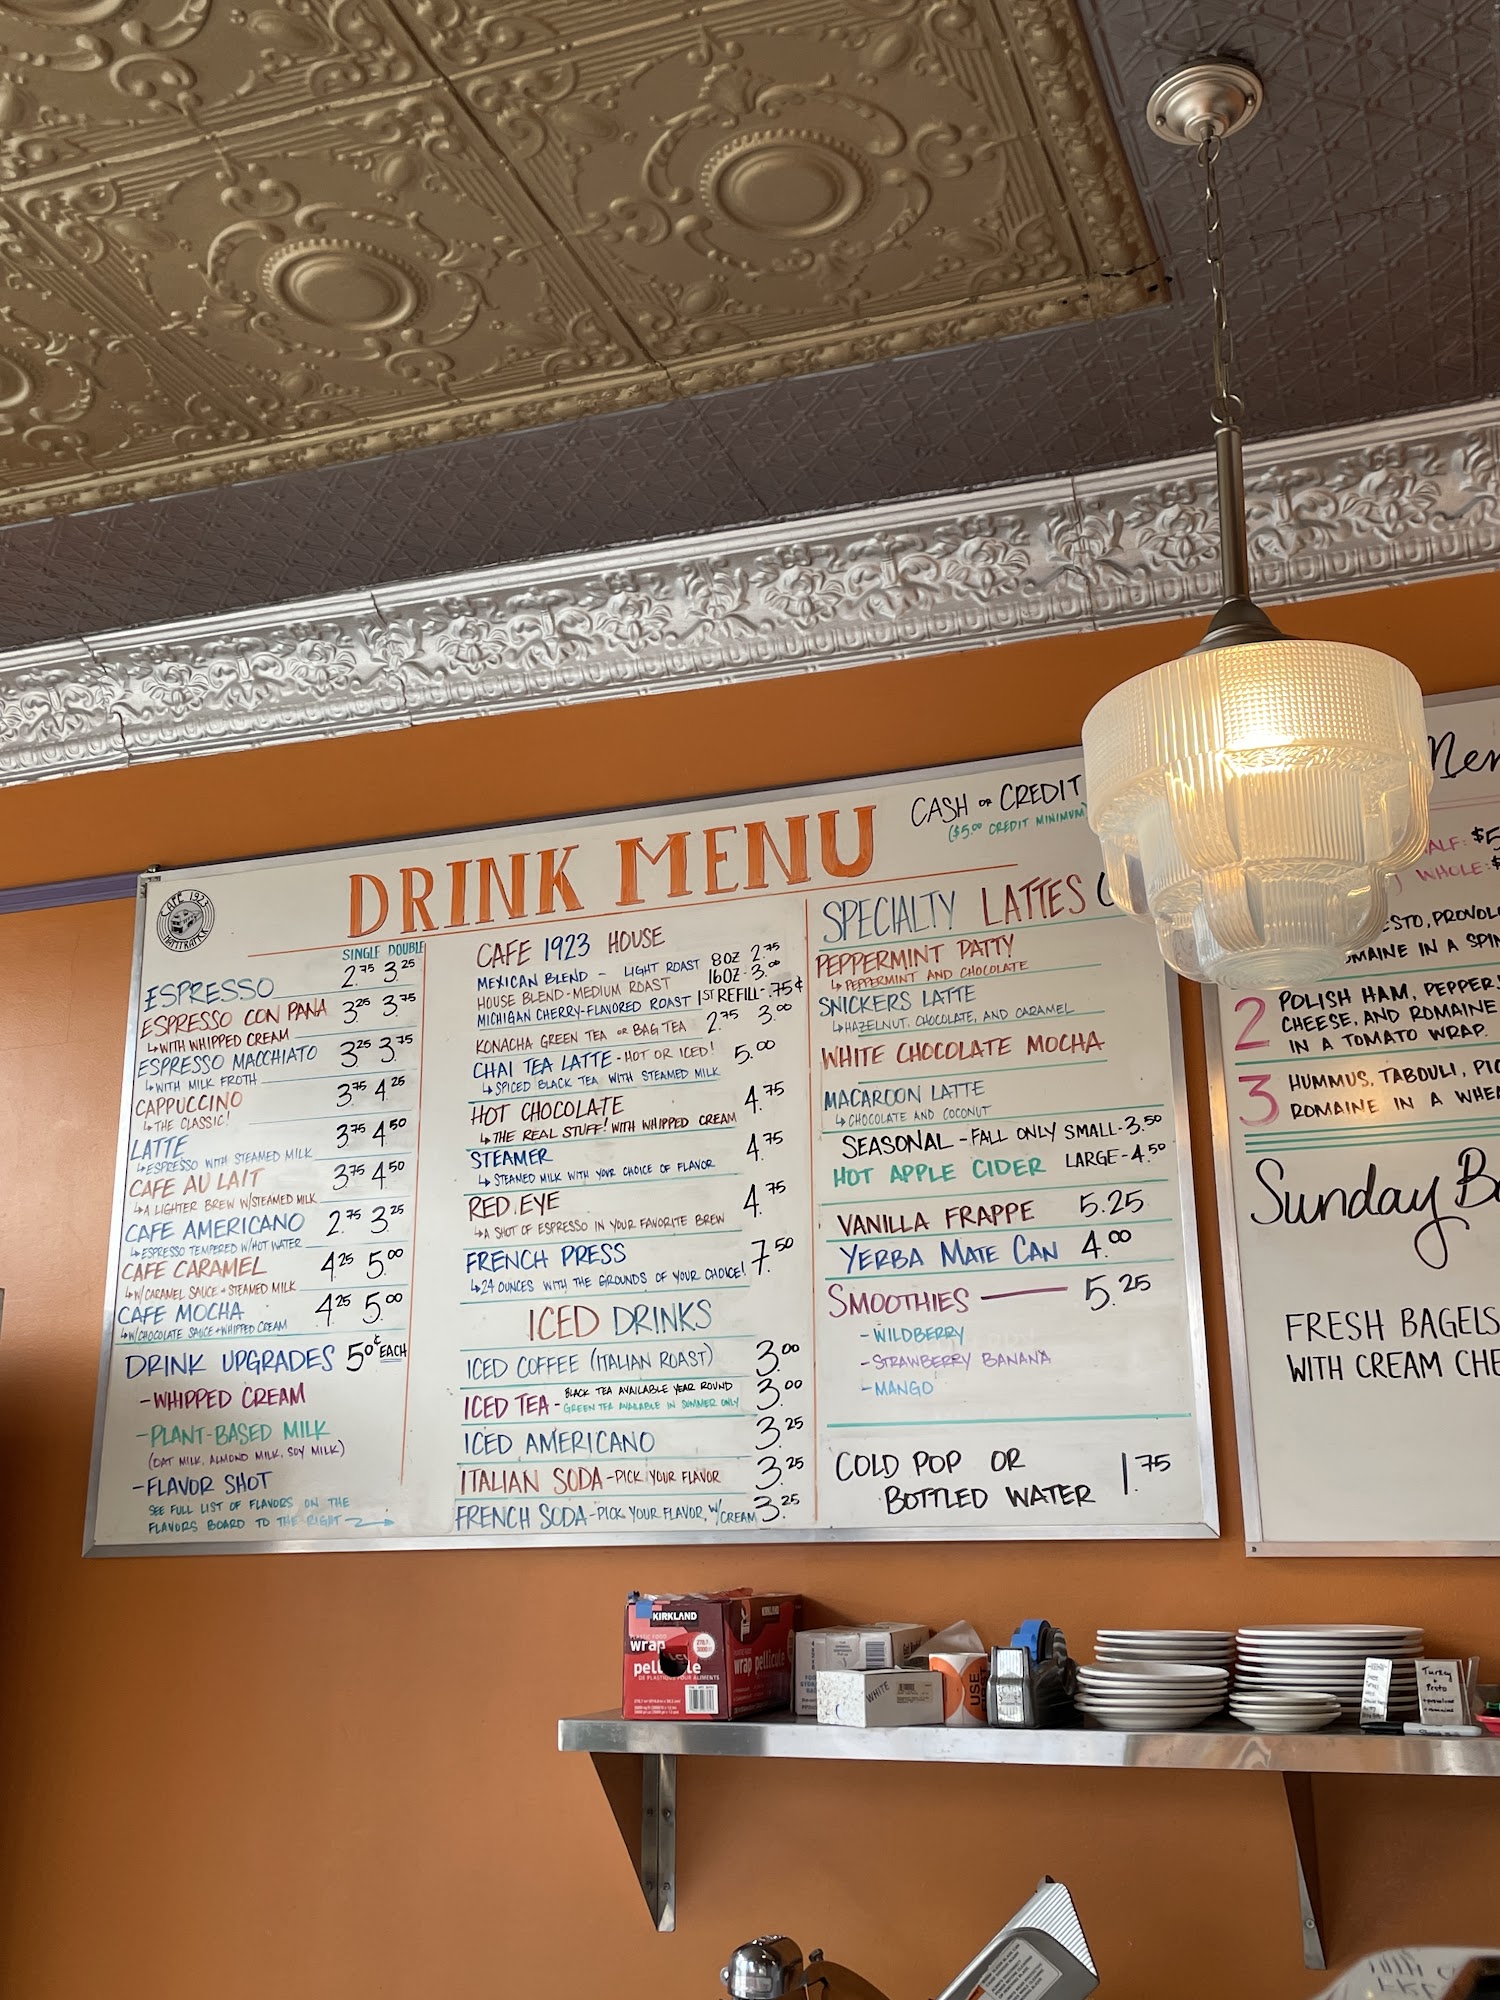 CAFE 1923
HAMTRAMCK
DRINK MENU
CASH OR CREDIT
($5.00 CREDIT MINIMUM)
SINGLE DOUBLE
ESPRESSO 2.75 3.25
ESPRESSO CON PANA 3.25 3.75
↳WITH WHIPPED CREAM
ESPRESSO MACCHIATO 3.25 3.75
↳WITH MILK FROTH
CAPPUCCINO 3.75 4.25
↳THE CLASSIC!
LATTE 3.75 4.50
↳ESPRESSO WITH STEAMED MILK
CAFE AU LAIT 3.75 4.50
↳A LIGHTER BREW W/STEAMED MILK
CAFE AMERICANO 2.75 3.25
↳ESPRESSO TEMPERED W/HOT WATER
CAFE CARAMEL 4.25 5.00
↳W/CARAMEL SAUCE + STEAMED MILK
CAFE MOCHA 4.25 5.00
↳W/CHOCOLATE SAUCE + WHIPPED CREAM
DRINK UPGRADES 50¢ EACH
-WHIPPED CREAM
-PLANT-BASED MILK
(OAT MILK, ALMOND MILK, SOY MILK)
-FLAVOR SHOT
SEE FULL LIST OF FLAVORS ON THE
FLAVORS BOARD TO THE RIGHT →
CAFE 1923 HOUSE
MEXICAN BLEND - LIGHT ROAST 8OZ 2.75
HOUSE BLEND-MEDIUM ROAST 16OZ-3.00
MICHIGAN CHERRY-FLAVORED ROAST 1ST REFILL-.75¢
KONACHA GREEN TEA OR BAG TEA 2.75 3.00
CHAI TEA LATTE-HOT OR ICED! 5.00
↳SPICED BLACK TEA WITH STEAMED MILK
HOT CHOCOLATE 4.75
↳THE REAL STUFF! WITH WHIPPED CREAM
STEAMER 4.75
↳STEAMED MILK WITH YOUR CHOICE OF FLAVOR
RED EYE 4.75
↳A SHOT OF ESPRESSO IN YOUR FAVORITE BREW
FRENCH PRESS 7.50
↳24 OUNCES WITH THE GROUNDS OF YOUR CHOICE!
ICED DRINKS
ICED COFFEE (ITALIAN ROAST) 3.00
ICED TEA - BLACK TEA AVAILABLE YEAR ROUND 3.00
GREEN TEA AVAILABLE IN SUMMER ONLY
ICED AMERICANO 3.25
ITALIAN SODA-PICK YOUR FLAVOR 3.25
FRENCH SODA-PICK YOUR FLAVOR, W/CREAM 3.25
SPECIALTY LATTES
PEPPERMINT PATTY
↳PEPPERMINT AND CHOCOLATE
SNICKERS LATTE
↳HAZELNUT, CHOCOLATE, AND CARAMEL
WHITE CHOCOLATE MOCHA
MACAROON LATTE
↳CHOCOLATE AND COCONUT
SEASONAL-FALL ONLY SMALL-3.50
HOT APPLE CIDER LARGE-4.50
VANILLA FRAPPE 5.25
YERBA MATE CAN 4.00
SMOOTHIES 5.25
-WILDBERRY
-STRAWBERRY BANANA
-MANGO
COLD POP OR
BOTTLED WATER 1.75
ALF: $5
WHOLE: $
ESTO, PROVOL
MAINE IN A SPIN
2 POLISH HAM, PEPPER
CHEESE, AND ROMAINE
IN A TOMATO WRAP.
3 HUMMUS, TABOULI, PIC
ROMAINE IN A WHEA
Sunday B
FRESH BAGELS
WITH CREAM CHE
KIRKLAND
PLASTIC FOOD
wrap
pellicule
DE PLASTIQUE POUR ALIMENTS
KIRKLAND
wrap pellicule
WHITE
USE
FIRST
Turkey
Pesto